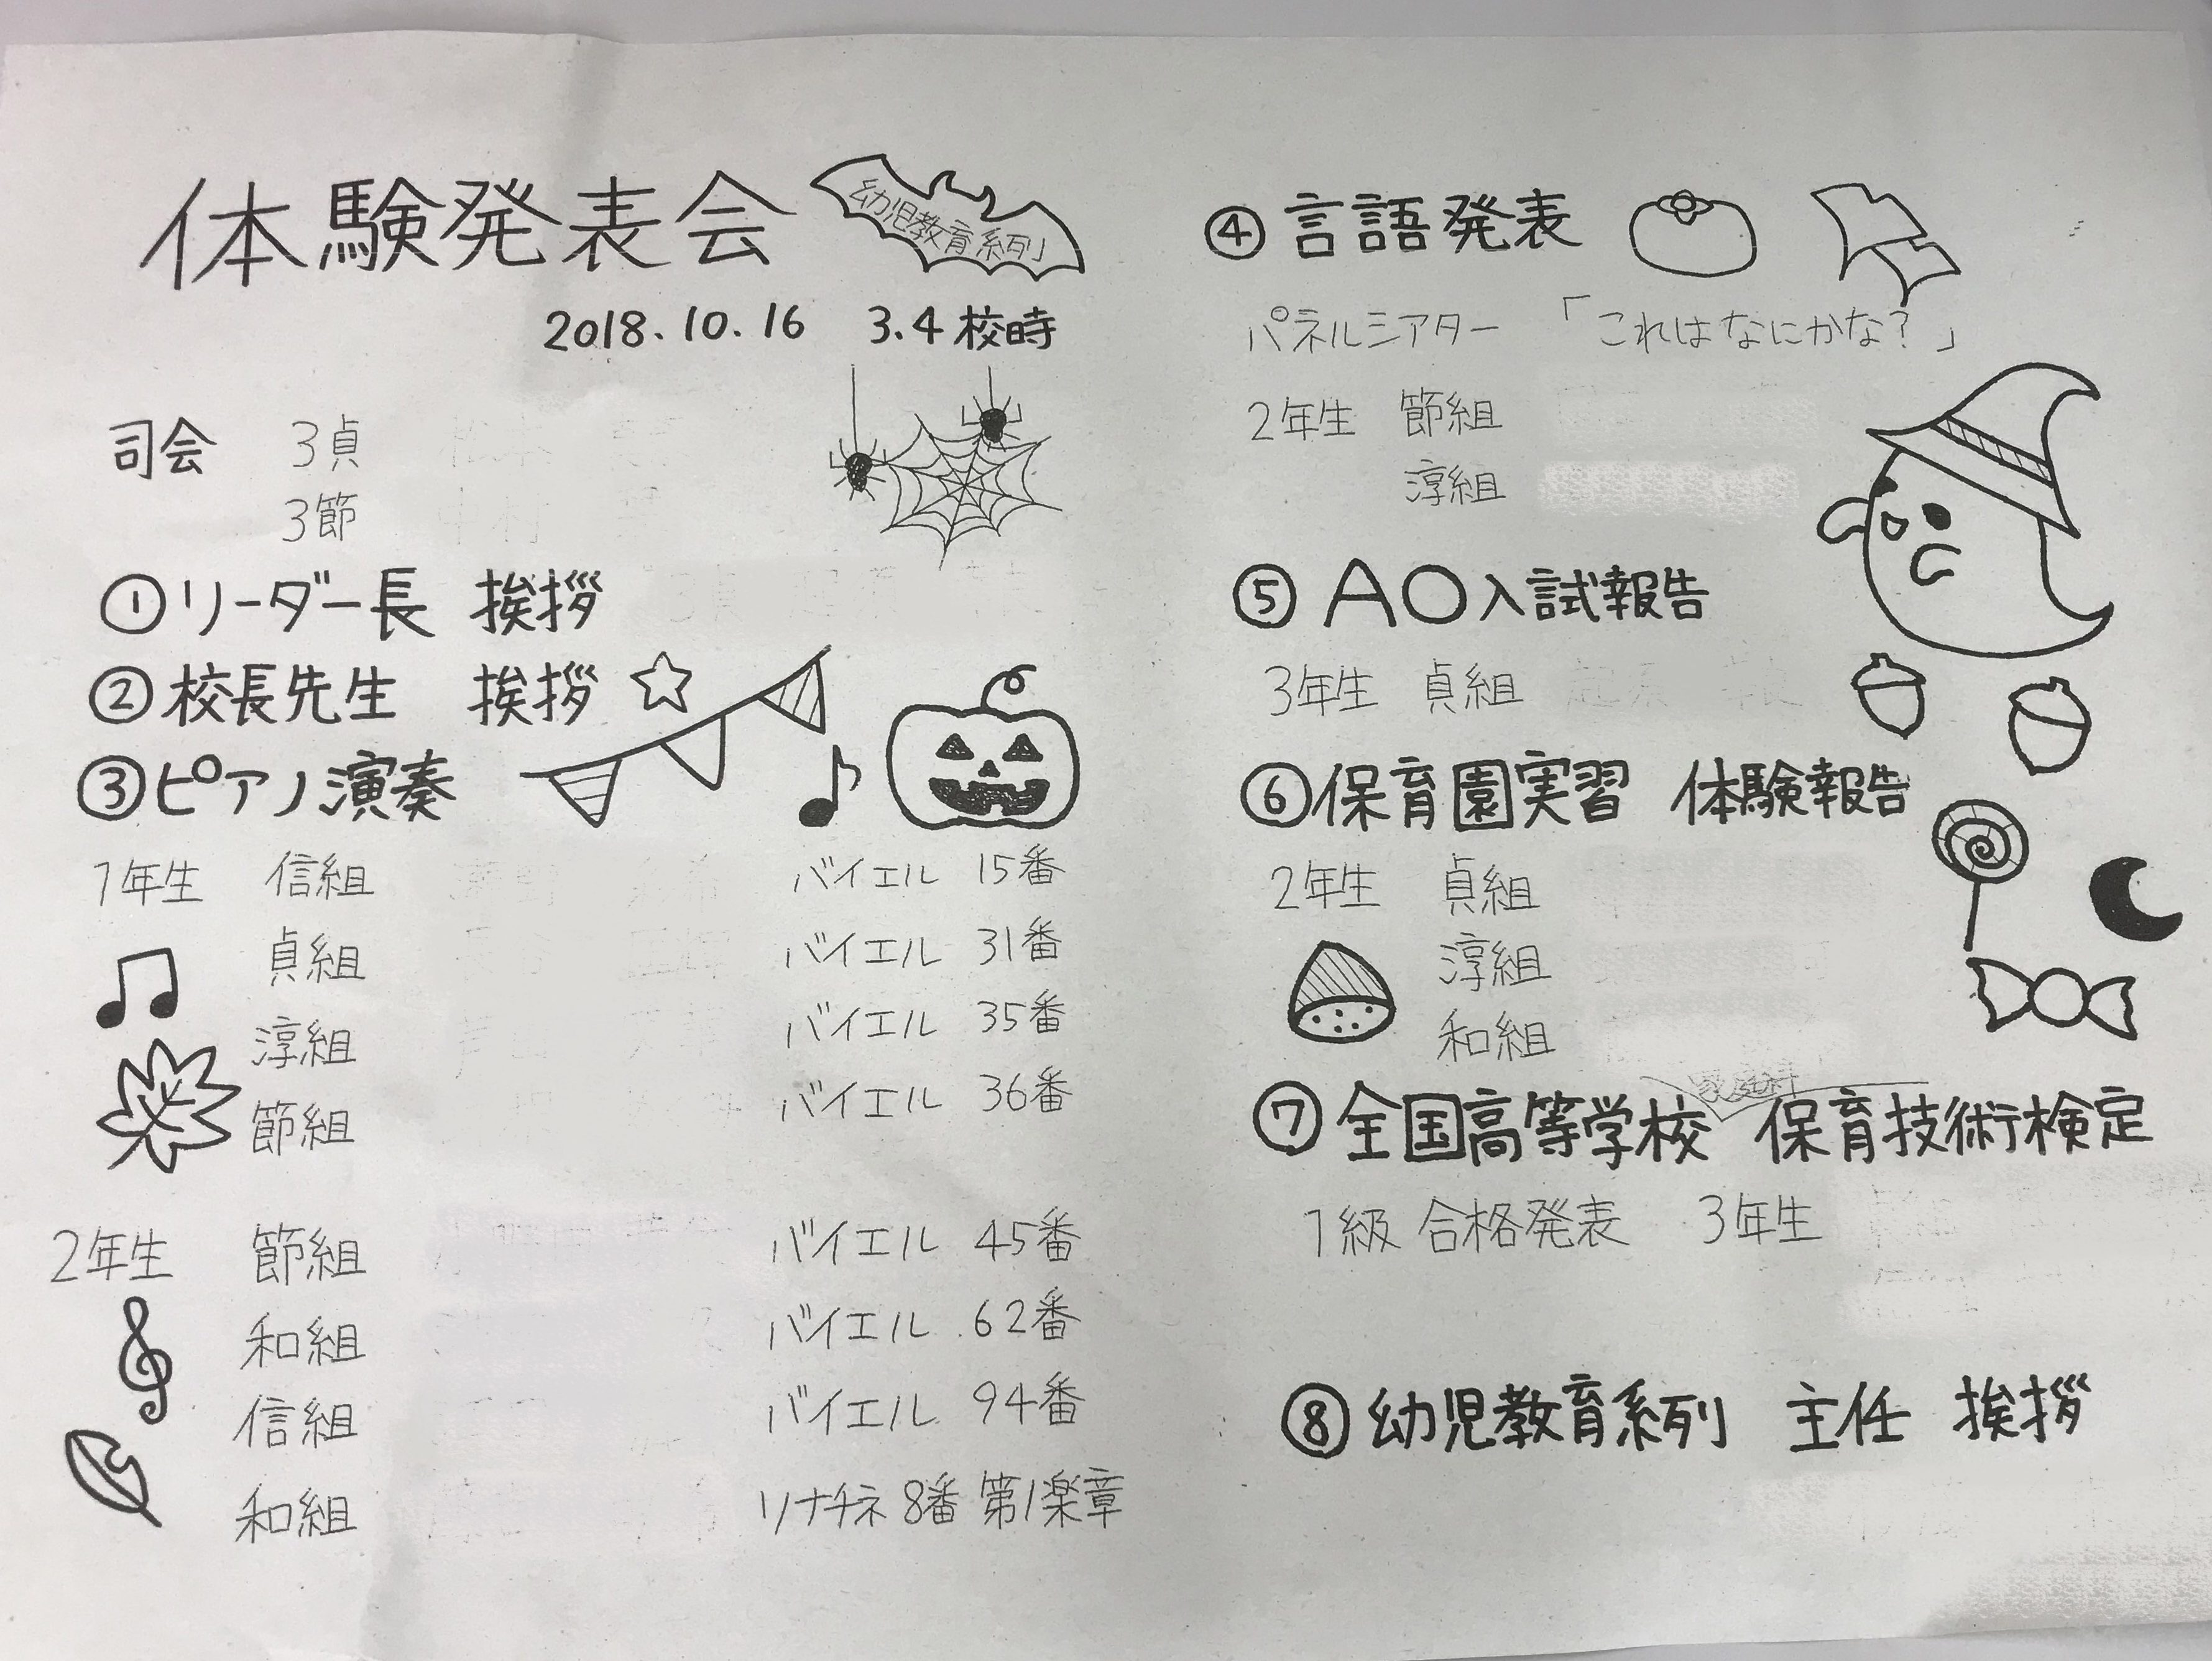 体験発表会
幼児教育系列
2018.10.16 3.4校時
司会 3貞
3節
①リーダー長 挨拶
②校長先生 挨拶
③ピアノ演奏
1年生 信組 バイエル 15番
貞組 バイエル 31番
淳組 バイエル 35番
節組 バイエル 36番
2年生 節組 バイエル 45番
和組 バイエル 62番
信組 バイエル 94番
和組 ソナチネ 8番 第1楽章
④言語発表
パネルシアター 「これはなにかな？」
2年生 節組
淳組
⑤AO入試報告
3年生 貞組
⑥保育園実習 体験報告
2年生 貞組
淳組
和組
家庭科
⑦全国高等学校 保育技術検定
1級 合格発表 3年生
⑧幼児教育系列 主任 挨拶